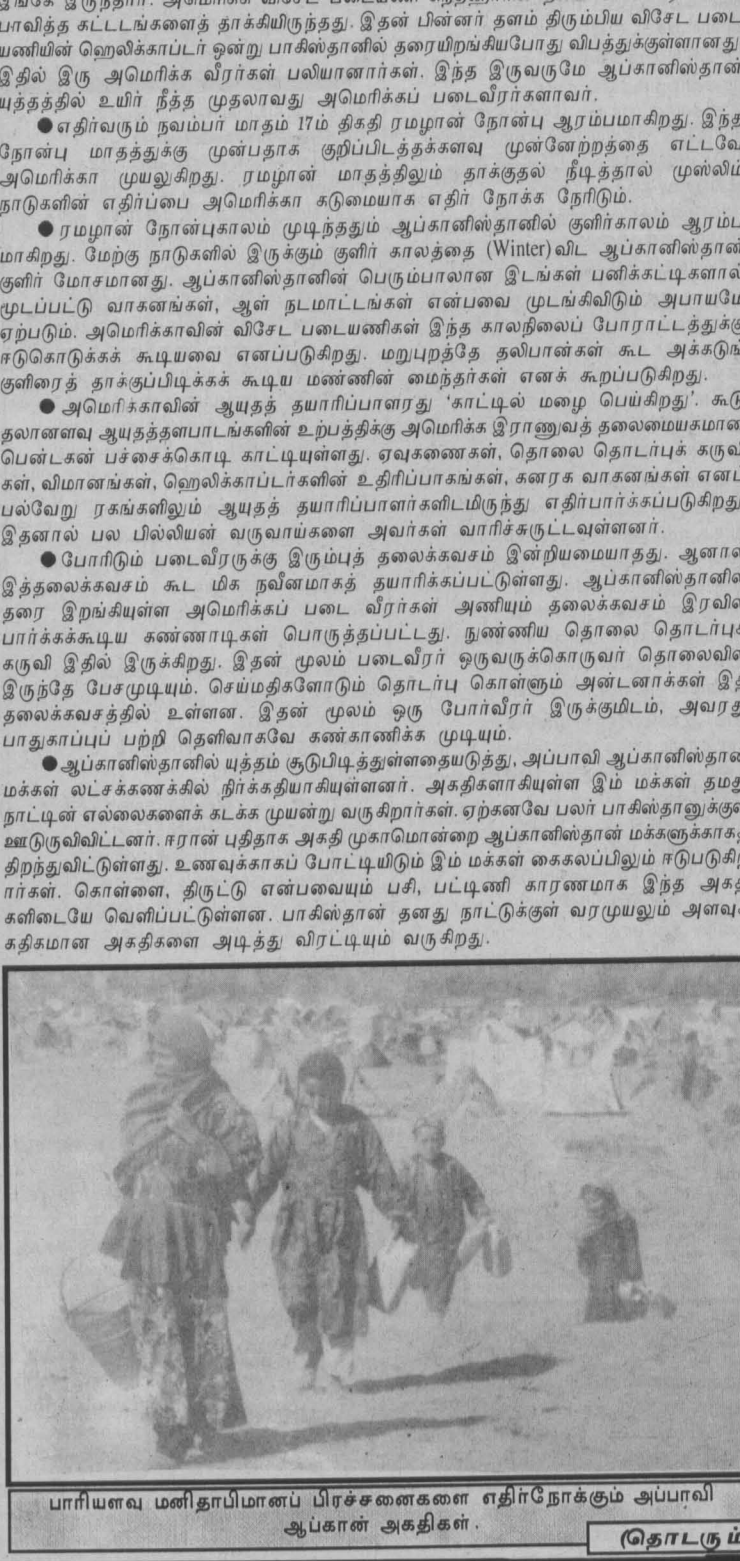 பாவித்த கட்டடங்களைத் தாக்கியிருந்தது. இதன் பின்னர் தளம் திரும்பிய விசேட படை
யணியின் ஹெலிக்காப்டர் ஒன்று பாகிஸ்தானில் தரையிறங்கியபோது விபத்துக்குள்ளானது
இதில் இரு அமெரிக்க வீரர்கள் பலியானார்கள். இந்த இருவருமே ஆப்கானிஸ்தான்
யுத்தத்தில் உயிர் நீத்த முதலாவது அமெரிக்கப் படைவீரர்களாவர்.
●எதிர்வரும் நவம்பர் மாதம் 17ம் திகதி ரமழான் நோன்பு ஆரம்பமாகிறது. இந்த
நோன்பு மாதத்துக்கு முன்பதாக குறிப்பிடத்தக்களவு முன்னேற்றத்தை எட்டவே
அமெரிக்கா முயலுகிறது. ரமழான் மாதத்திலும் தாக்குதல் நீடித்தால் முஸ்லிம்
நாடுகளின் எதிர்ப்பை அமெரிக்கா கடுமையாக எதிர் நோக்க நேரிடும்.
● ரமழான் நோன்புகாலம் முடிந்ததும் ஆப்கானிஸ்தானில் குளிர்காலம் ஆரம்ப
மாகிறது. மேற்கு நாடுகளில் இருக்கும் குளிர் காலத்தை (Winter) விட ஆப்கானிஸ்தான்
குளிர் மோசமானது. ஆப்கானிஸ்தானின் பெரும்பாலான இடங்கள் பனிக்கட்டிகளால்
மூடப்பட்டு வாகனங்கள், ஆள் நடமாட்டங்கள் என்பவை முடங்கிவிடும் அபாயமே
ஏற்படும். அமெரிக்காவின் விசேட படையணிகள் இந்த காலநிலைப் போராட்டத்துக்கு
ஈடுகொடுக்கக் கூடியவை எனப்படுகிறது. மறுபுறத்தே தலிபான்கள் கூட அக்கடுங்
குளிரைத் தாக்குப்பிடிக்கக் கூடிய மண்ணின் மைந்தர்கள் எனக் கூறப்படுகிறது.
● அமெரிக்காவின் ஆயுதத் தயாரிப்பாளரது 'காட்டில் மழை பெய்கிறது'. கூடு
தலானளவு ஆயுதத்தளபாடங்களின் உற்பத்திக்கு அமெரிக்க இராணுவத் தலைமையகமான
பென்டகன் பச்சைக்கொடி காட்டியுள்ளது. ஏவுகணைகள், தொலை தொடர்புக் கருவி
கள், விமானங்கள், ஹெலிக்காப்டர்களின் உதிரிப்பாகங்கள், கனரக வாகனங்கள் எனப்
பல்வேறு ரகங்களிலும் ஆயுதத் தயாரிப்பாளர்களிடமிருந்து எதிர்பார்க்கப்படுகிறது
இதனால் பல பில்லியன் வருவாய்களை அவர்கள் வாரிச்சுருட்டவுள்ளனர்.
● போரிடும் படைவீரருக்கு இரும்புத் தலைக்கவசம் இன்றியமையாதது. ஆனால்
இத்தலைக்கவசம் கூட மிக நவீனமாகத் தயாரிக்கப்பட்டுள்ளது. ஆப்கானிஸ்தானில்
தரை இறங்கியுள்ள அமெரிக்கப் படை வீரர்கள் அணியும் தலைக்கவசம் இரவில்
பார்க்கக்கூடிய கண்ணாடிகள் பொருத்தப்பட்டது. நுண்ணிய தொலை தொடர்புக்
கருவி இதில் இருக்கிறது. இதன் மூலம் படைவீரர் ஒருவருக்கொருவர் தொலைவில்
இருந்தே பேசமுடியும். செய்மதிகளோடும் தொடர்பு கொள்ளும் அன்டனாக்கள் இத்
தலைக்கவசத்தில் உள்ளன. இதன் மூலம் ஒரு போர்வீரர் இருக்குமிடம், அவரது
பாதுகாப்புப் பற்றி தெளிவாகவே கண்காணிக்க முடியும்.
●ஆப்கானிஸ்தானில் யுத்தம் சூடுபிடித்துள்ளதையடுத்து, அப்பாவி ஆப்கானிஸ்தான்
மக்கள் லட்சக்கணக்கில் நிர்க்கதியாகியுள்ளனர். அகதிகளாகியுள்ள இம் மக்கள் தமது
நாட்டின் எல்லைகளைக் கடக்க முயன்று வருகிறார்கள். ஏற்கனவே பலர் பாகிஸ்தானுக்குள்
ஊடுருவிவிட்டனர். ஈரான் புதிதாக அகதி முகாமொன்றை ஆப்கானிஸ்தான் மக்களுக்காகத்
திறந்துவிட்டுள்ளது. உணவுக்காகப் போட்டியிடும் இம் மக்கள் கைகலப்பிலும் ஈடுபடுகிற
ார்கள். கொள்ளை, திருட்டு என்பவையும் பசி, பட்டிணி காரணமாக இந்த அகதி
களிடையே வெளிப்பட்டுள்ளன. பாகிஸ்தான் தனது நாட்டுக்குள் வரமுயலும் அளவுக்
கதிகமான அகதிகளை அடித்து விரட்டியும் வருகிறது.
பாரியளவு மனிதாபிமானப் பிரச்சனைகளை எதிர்நோக்கும் அப்பாவி
ஆப்கான் அகதிகள்.
(தொடரும்